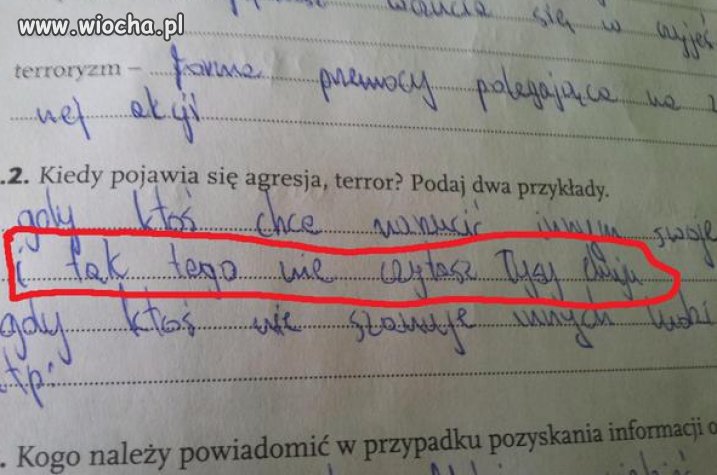 www.wiocha.pl
się w wyjeś
terroryzm – forma przemocy polegająca na
nej akcji
.2. Kiedy pojawia się agresja, terror? Podaj dwa przykłady.
gdy ktoś chce narzucić innym swoje
i tak tego nie czytasz łysy chuju
gdy ktoś nie szanuje innych ludzi
itp.
. Kogo należy powiadomić w przypadku pozyskania informacji o